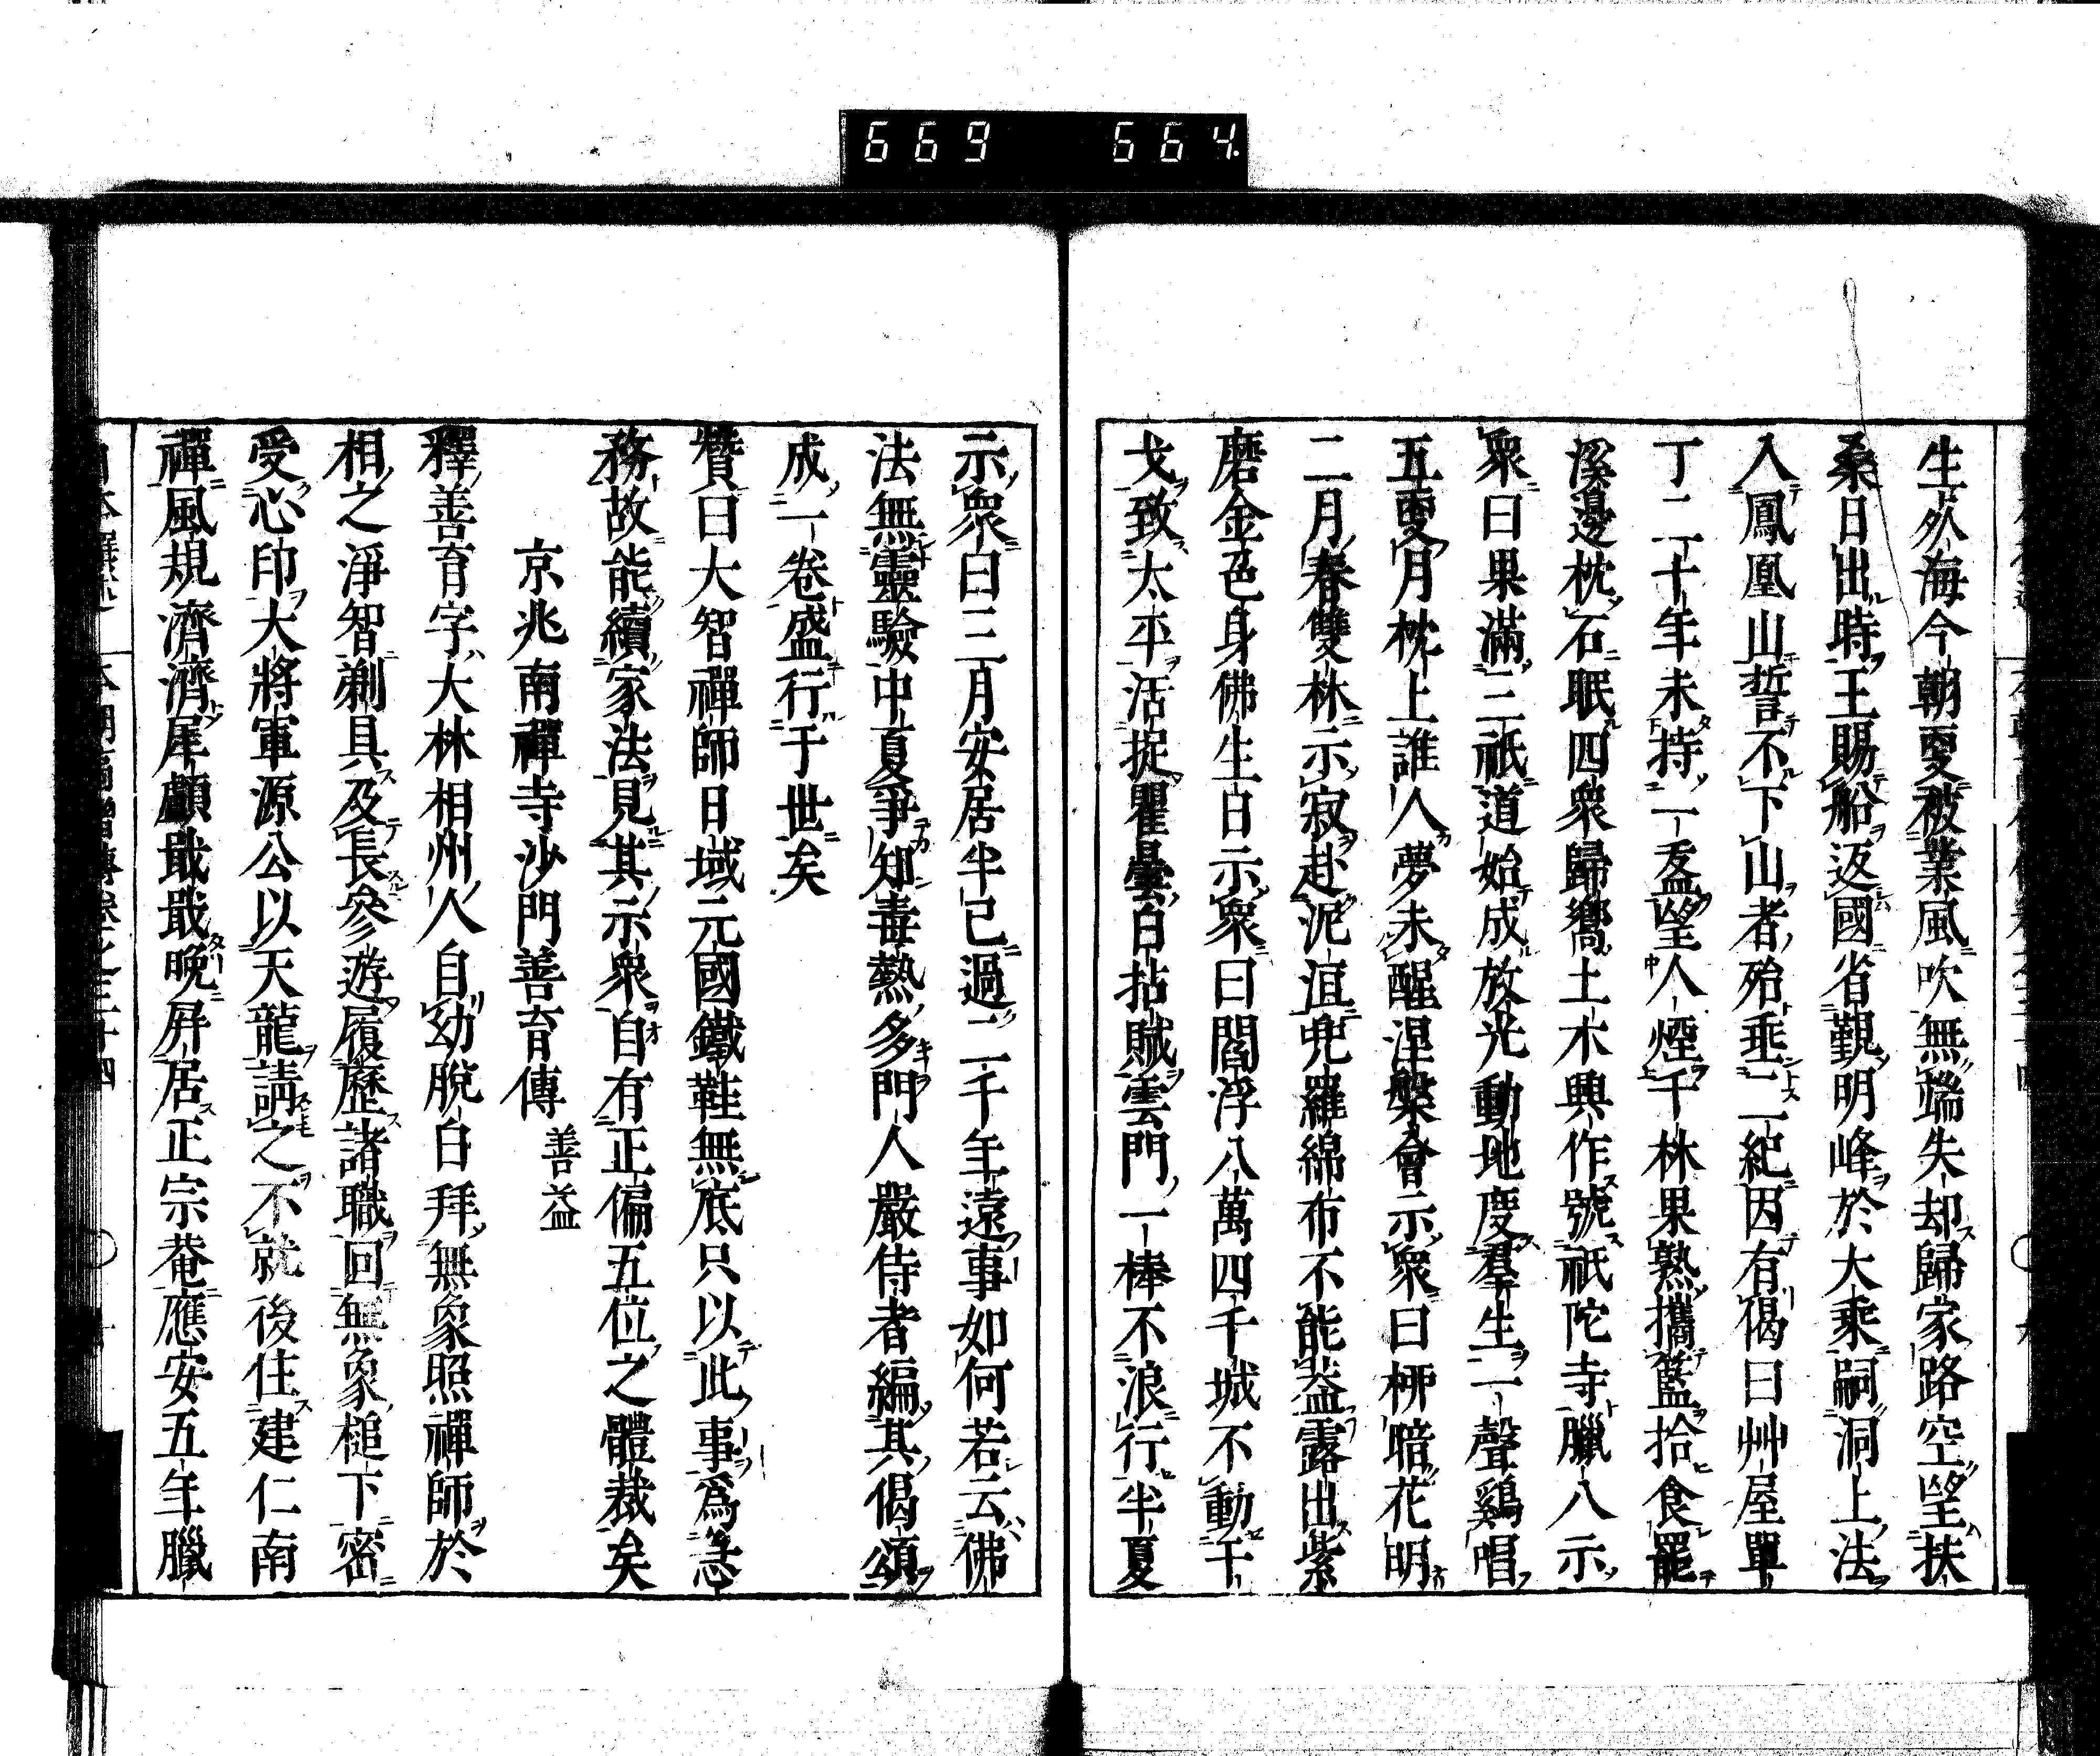 669 664.
生外海今朝更被業風吹無端失却歸家路空望扶
桑日出時王賜船返國省覲明峰於大乘嗣洞上法
入鳳凰山誓不下山者殆垂二紀因有偈曰艸屋單
丁二十年未持一盋望人煙千林果熟攜籃拾食罷
溪邊枕石眠四衆歸嚮土木興作號祇陀寺臘八示
衆曰果滿三祇道始成放光動地度羣生一聲鷄唱
五更月枕上誰人夢未醒涅槃會示衆曰柳暗花明
二月春雙林示寂赴泥洹兜羅綿布不能蓋露出紫
磨金色身佛生日示衆曰閻浮八萬四千城不動干
戈致太平活捉瞿曇白拈賊雲門一棒不浪行半夏
示衆曰三月安居半已過二千年遠事如何若云佛
法無靈驗中夏爭知毒熱多門人嚴侍者編其偈頌
成一卷盛行于世矣
贊曰大智禪師日域元國鐵鞋無底只以此事爲急
務故能續家法見其示衆自有正偏五位之體裁矣
京兆南禪寺沙門善育傳 善益
釋善育字大林相州人自幼脫白拜無象照禪師於
相之淨智剃具及長參遊履歷諸職回無象槌下密
受心印大將軍源公以天龍請之不就後住建仁南
禪風規濟濟犀顱戢戢晩屛居正宗菴應安五年臘